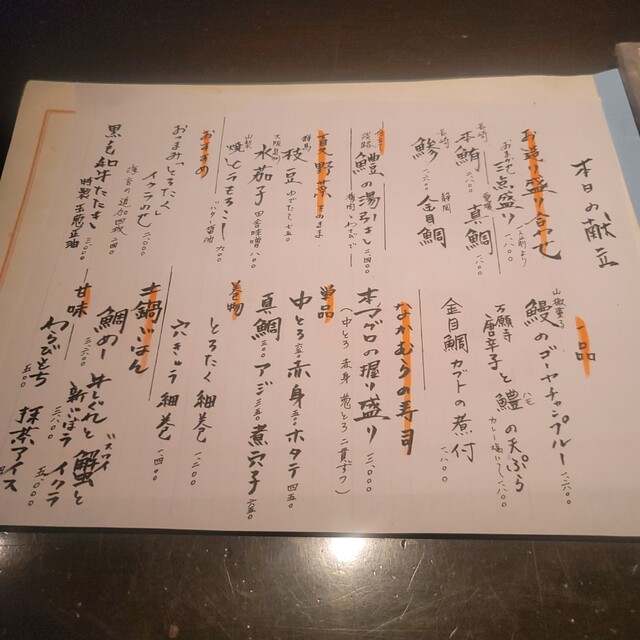 本日の献立
お造り盛り合せ
おまかせ 三点盛り 一人前より 一、八〇〇
長崎 本鮪 愛媛 真鯛 一、八〇〇
長崎 鯵 一、六〇〇 静岡 金目鯛
淡路 鱧の湯引き 二、四〇〇
梅肉とわさびで
夏野菜そのまま
群馬 枝豆 ゆでたて 七五〇
大阪泉州 水茄子 田舎味噌 八〇〇
山梨 焼とうもろこし バター醤油 九〇〇
おすすめ
おつまみ「とろたく」
イクラのせ 二、〇〇〇
海苔の追加四枚 二〇〇
黒毛和牛たたき
特製玉葱正油 三、〇〇〇
一品
山椒薫る 鰻のゴーヤチャンプルー 二、六〇〇
万願寺唐辛子と鱧の天ぷら
カレー塩にて 一、八〇〇
金目鯛カブトの煮付 一、八〇〇
なかむらの寿司
本マグロの握り盛り 三、〇〇〇
(中とろ 赤身 葱とろ 二貫ずつ)
単品
中とろ 六五〇 赤身 五〇〇 ホタテ 四五〇
真鯛 五〇〇 アジ 三五〇 煮穴子 六五〇
巻物
とろたく細巻 一、二〇〇
穴きゅう細巻 一、四〇〇
土鍋ごはん
鯛めし 三、六〇〇 牛しぐれと新ごぼう 三、八〇〇
ズワイ蟹とイクラ 五、〇〇〇
甘味
わらびもち 五〇〇 抹茶アイス